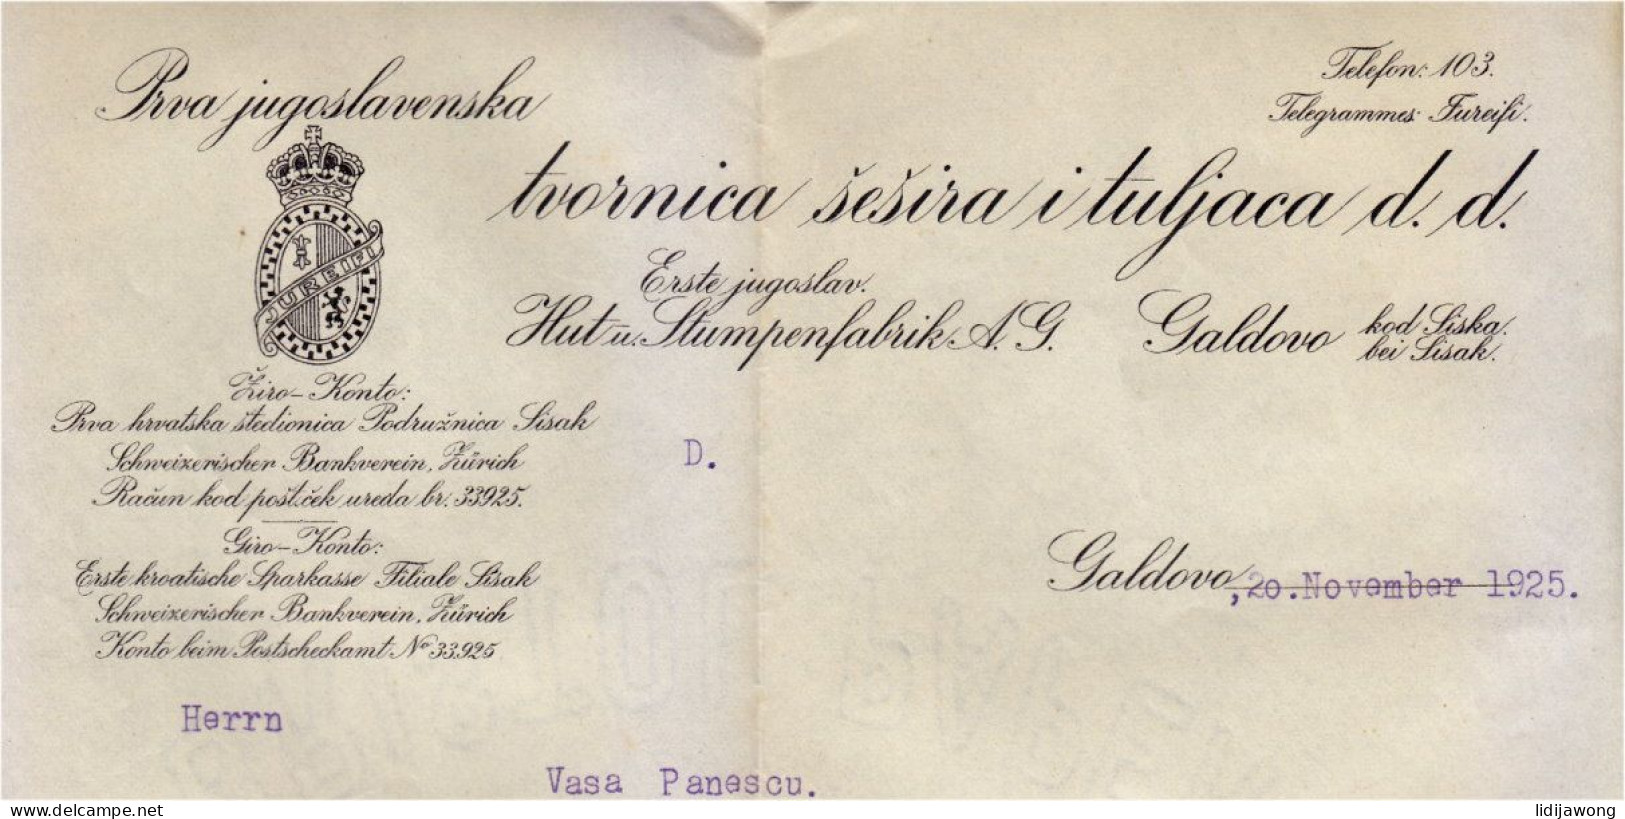 Prva jugoslavenska
Telefon: 103.
Telegrammes: Jureifi.
tvornica šešira i tuljaca d. d.
JUREIFI
Erste jugoslav.
Hut u. Stumpenfabrik A. G.
Galdovo kod Siska.
bei Sisak.
Žiro-Konto:
Prva hrvatska štedionica Podružnica Sisak
Schweizerischer Bankverein, Zürich
Račun kod pošt. ček ureda br. 33925.
D.
Giro-Konto:
Erste kroatische Sparkasse Filiale Sisak
Schweizerischer Bankverein, Zürich
Konto beim Postscheckamt No 33.925
Galdovo, 20. November 1925.
Herrn
Vasa Panescu.
www.delcampe.net
lidijawong